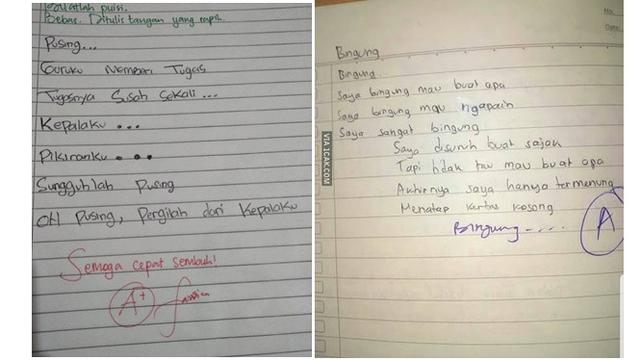 puisi.
Bebas. Ditulis tangan yang rapi.
Pusing...
Guruku Memberi Tugas
Tugasnya Susah Sekali ...
Kepalaku ...
Pikiranku ...
Sungguhlah Pusing
Oh Pusing, Pergilah dari Kepalaku
Semoga cepat sembuh!
A+
No.
Date:
Bingung
Bingung
Saya bingung mau buat apa
Saya bingung mau ngapain
Saya sangat bingung
Saya disuruh buat sajak
Tapi tidak tau mau buat apa
Akhirnya saya hanya termenung
Menatap kertas kosong
Bingung....
A
VIA 1CAK.COM